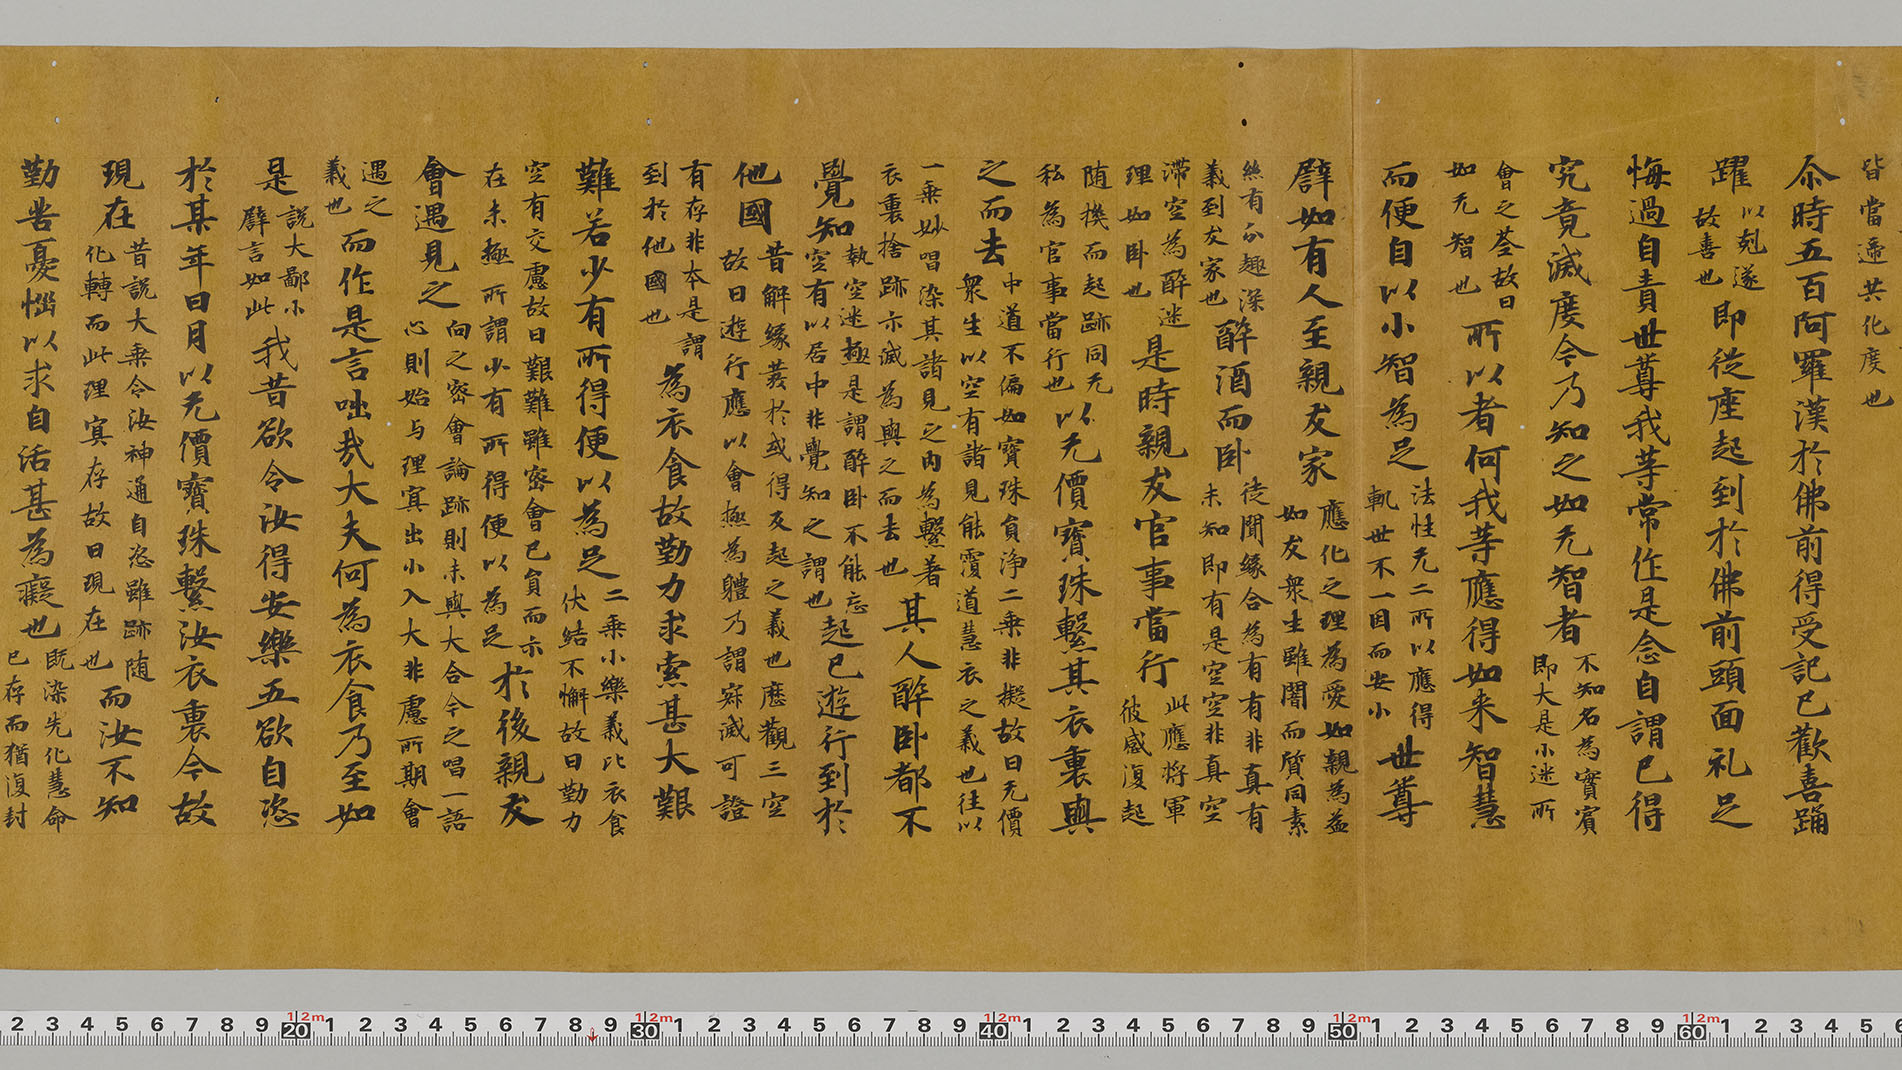 皆當遞共化度也
尒時五百阿羅漢於佛前得受記已歡喜踊
躍以剋遂故善也即從座起到於佛前頭面礼足
悔過自責世尊我等常作是念自謂已得
究竟滅度今乃知之如无智者不知名為實賓即大是小迷所
會之荃故曰如无智也所以者何我等應得如来智慧
而便自以小智為足法性无二所以應得軌世不一因而安小世尊
譬如有人至親友家應化之理為愛如親為益如友衆生雖闇而質同素
絲有尒趣深義到友家也醉酒而卧徒聞緣合為有有非真有未知即有是空空非真空
滯空為醉迷理如卧也是時親友官事當行此應将軍彼感復起
随機而起跡同无私為官事當行也以无價寶珠繫其衣裏與
之而去中道不偏如寶珠貟浄二乗非擬故曰无價衆生以空有諸見能覆道慧衣之義也往以
一乗妙唱染其諸見之内為繫著衣裏捨跡亦滅為與之而去也其人醉卧都不
覺知執空迷極是謂醉卧不能忘空有以居中非覺知之謂也起已遊行到於
他國昔解緣於或得及起之義也歷觀三空故曰遊行應以會極為軆乃謂寂滅可證
有存非本是謂到於他國也為衣食故勤力求索甚大艱
難若少有所得便以為足二乗小樂義比衣食伏結不懈故曰勤力
空有交慮故曰艱難雖密會已貟而尒在未極所謂少有所得便以為足於後親友
會遇見之向之密會論跡則未與大合今之唱一語心則始与理寘出小入大非慮所期會
遇之義也而作是言咄㢤大夫何為衣食乃至如
是說大鄙小譬言如此我昔欲令汝得安樂五欲自恣
於某年日月以无價寶珠繫汝衣裏今故
現在昔說大乗令汝神通自恣雖跡随化轉而此理寘存故曰現在也而汝不知
勤苦憂惱以求自活甚為癡也既染先化慧命已存而猶復封